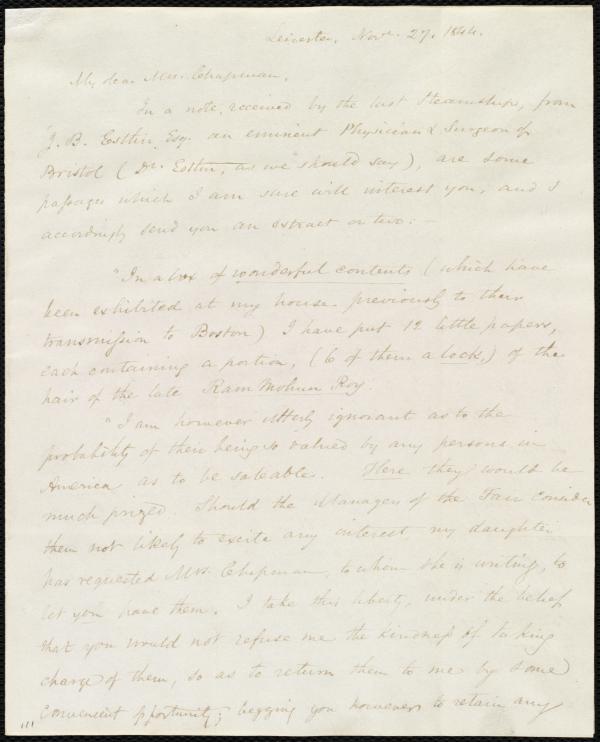 Leicester, Novr. 27. 1844.
My dear Mrs. Chapman,
In a note, received by the last Steamship, from
J. B. Estlin, Esq. an eminent Physician & Surgeon of
Bristol (Dr. Estlin, as we should say), are some
passages which I am sure will interest you, and I
accordingly send you an extract or two: —
"In a box of wonderful contents (which have
been exhibited at my house previously to their
transmission to Boston) I have put 12 little papers,
each containing a portion, (6 of them a lock,) of the
hair of the late Ram Mohun Roy.
"I am however utterly ignorant as to the
probability of their being so valued by any persons in
America as to be saleable. Here they would be
much prized. Should the Managers of the Fair consider
them not likely to excite any interest, my daughter
has requested Mrs. Chapman, to whom she is writing, to
let you have them. I take this liberty, under the belief
that you would not refuse me the kindness of taking
charge of them, so as to return them to me by some
convenient opportunity; begging you however to retain any